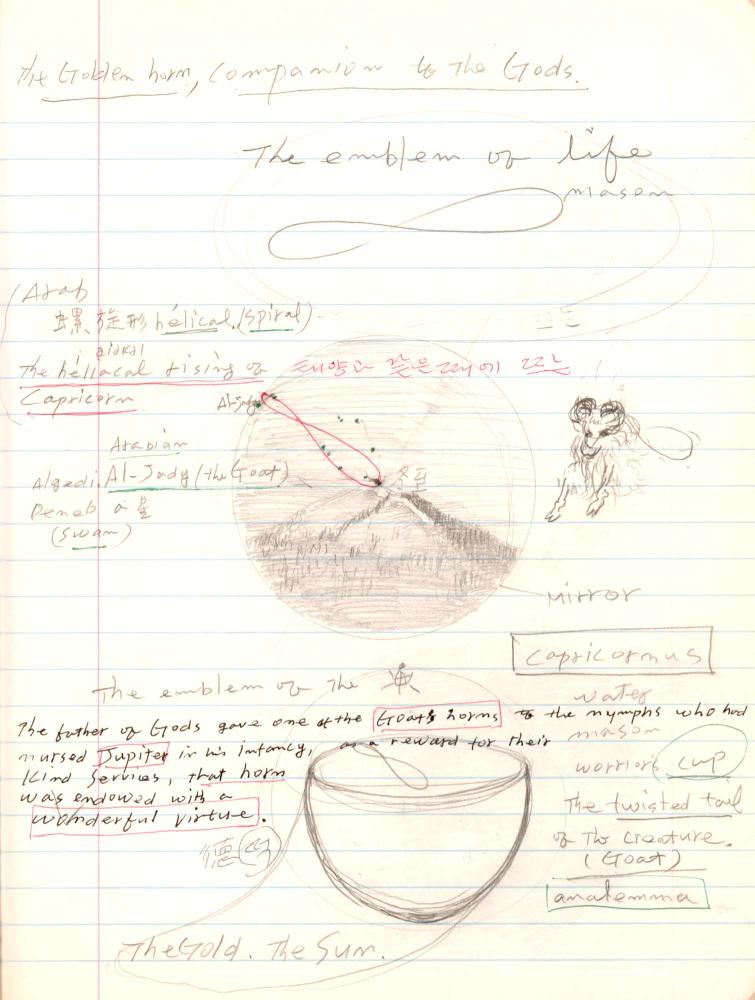 the Golden horn, Companion to the Gods.
The emblem of life
mason
(Arab
螺旋形 helical (spiral)
The heliacal rising of 태양과 같은때에 뜨는
Capricorn
Al-Jady
Arabian
Algedi. Al-Jady (the Goat)
Deneb α星
(Swan)
冬至
Mirror
Capricornus
The emblem of the
water
The father of Gods gave one of the Goat's horns to the nymphs who had
mason
nursed Jupiter in his infancy, as a reward for their
Kind Services, that horn
worriors cup
was endowed with a
wonderful virtue.
The twisted tail
of the creature.
(Goat)
德 (덕)
analemma
The Gold. The Sun.